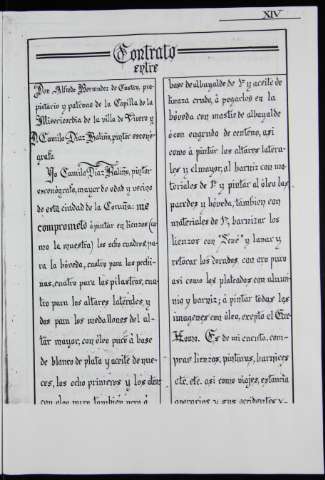 XIV
Contrato
entre
Don Alfredo Bermudez de Castro, pro-
pietario y patrono de la Capilla de la
Misericordia de la villa de Vivero y
D. Camilo Diaz Baliño, pintor escenó-
grafo
Yo Camilo Diaz Baliño, pintor
escenógrafo, mayor de edad y vecino
de esta ciudad de la Coruña: me
comprometo á pintar en lienzos (co-
mo la muestra) los ocho cuadros pa-
ra la bóveda, cuatro para las pechi-
nas, cuatro para las pilastras, cua-
tro para los altares laterales y
dos para los medallones del al-
tar mayor, con óleo puro á base
de blanco de plata y aceite de nue-
ces, los ocho primeros y los
con óleo puro también pero á
base de albayalde de 1ª y aceite de
linaza crudo, á pegarlos en la
bóveda con mastic de albayalde
ó con engrudo de centeno, así
como á pintar los altares latera-
les y el mayor, al barniz con ma-
teriales de 1ª y pintar al óleo las
paredes y bóveda, tambien con
materiales de 1ª, barnizar los
lienzos con y lavar y
retocar los dorados con oro puro
así como los plateados con alumi-
nio y barniz; á pintar todas las
imagenes con óleo, exepto el Ecce
Homo. Es de mi cuenta, com-
prar lienzos, pinturas, barnices
etc. etc. así como viajes, estancia
operarios y sus accidentes y